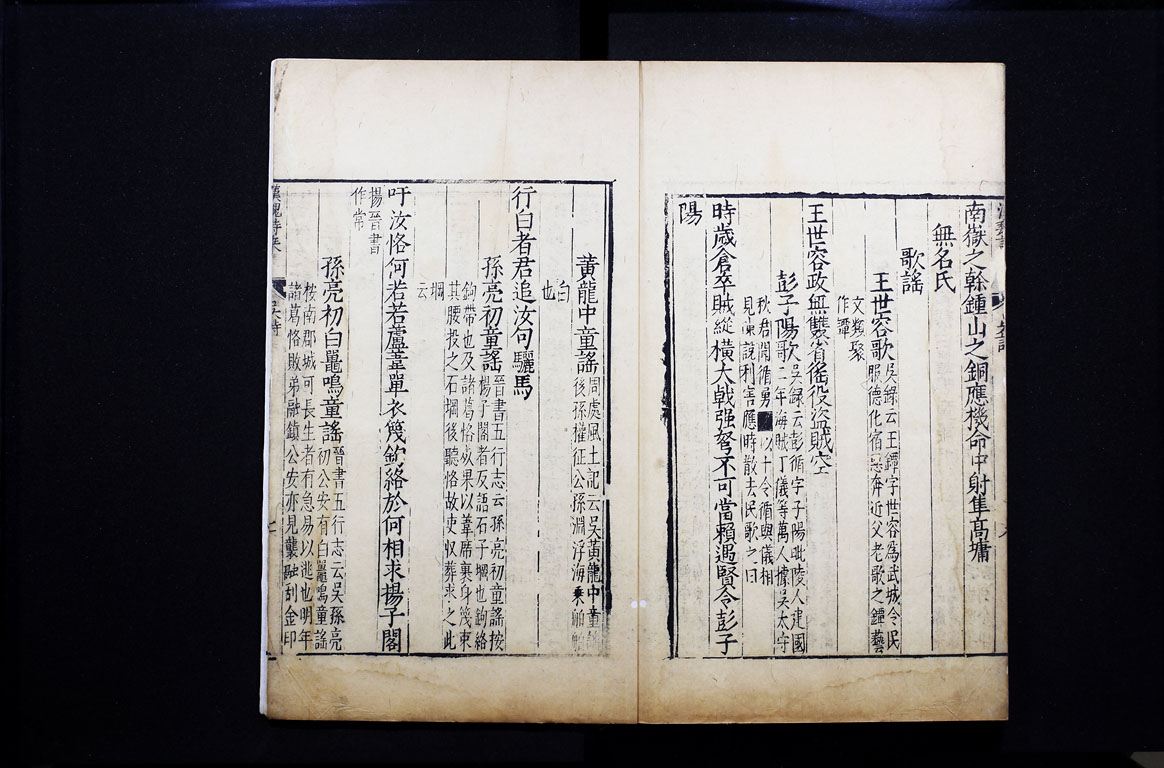 南嶽之幹鍾山之銅應機命中射隼高墉
無名氏
歌謠
王世容歌吳録云王鐔字世容為武城令民
服德化宿惡奔近父老歌之鐔藝
文類聚
作譚
王世容政無雙省徭役盜賊空
彭子陽歌吳録云彭循字子陽毗陵人建國
二年海賊丁儀等萬人據吳太守
秋君聞循勇以十令循與儀相
見陳說利害應時散去民歌之曰
時歲倉卒賊縱橫大戟强弩不可當賴遇賢令彭子
陽
黃龍中童謠周處風土記云吳黃龍中童謠
後孫權征公孫淵浮海乘舶舶
白
也
行白者君追汝句驪馬
孫亮初童謠晉書五行志云孫亮初童謠按
楊子閣者反語石子堈也鉤絡
鉤帶也及諸葛恪死果以葦席裹身篾束
其腰投之石堈後聽恪故吏收葬求之此
堈
云
吁汝恪何若若蘆葦單衣篾鉤絡於何相求揚子閣
揚晉書
作常
孫亮初白鼉鳴童謠晉書五行志云吳孫亮
初公安有白鼉鳴童謠
按南郡城可長生者有急易以逃也明年
諸葛恪敗弟融鎮公安亦見襲融刮金印
漢魏詩乗
吳詩